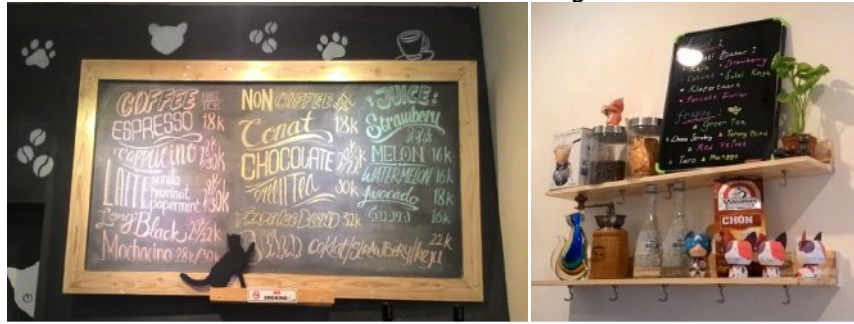 COFFEE
ESPRESSO 18k
Cappucino
LATTE vanila
hazelnut
papermint
Long Black
Mochacino 28k/30k
NON COFFEE
Conat 18k
CHOCOLATE
Green Tea 30k
32k
coklat/Strawbery/keju 22k
JUICE:
Strawbery
MELON 16k
WATERMELON 16k
Avocado 18k
Guava 16k
SMOKING
Food :
Roti Bakar :
Keju Strawberry
Coklat Selai Kaya
Klapertaart
Pancake Durian
Frappe :
Green Tea
Choco Strawby Terong Blnd
Red Velvet
Taro Manggo
CHÓN